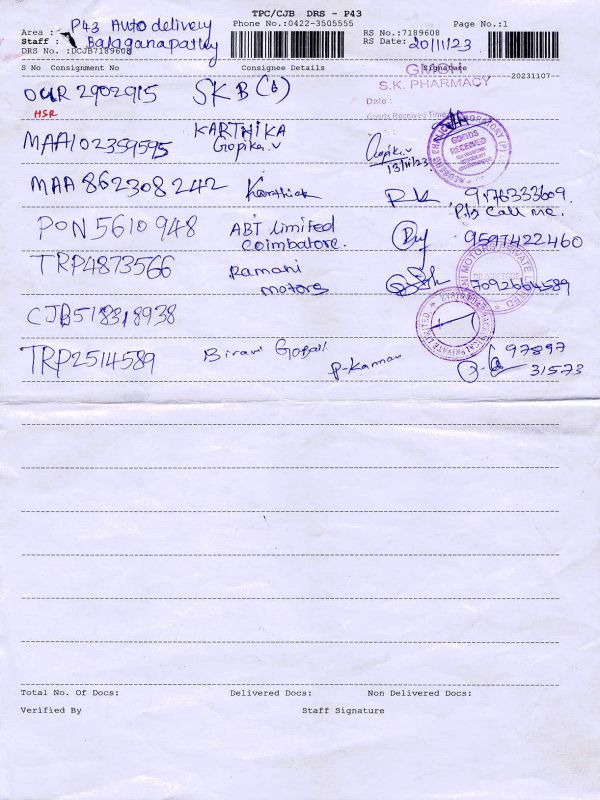 TPC/CJB DRS - P43
Area : P43 Auto delivery
Phone No.:0422-3505555
RS No.:7189608
Page No.:1
Staff : Balaganapathy
RS Date: 20/11/23
DRS No. :DCJB7189608
--20231107--
S No Consignment No Consignee Details Signature
GMCH
S.K. PHARMACY
Date :
Goods Received Time
OUR 2902915 SKB (6)
HSR
MAA102359595 KARTHIKA
Gopika.v Gopika.v
13/11/23
GOODS RECEIVED
MAA 862308242 Karthick RK 9176333609.
Pls call me.
PON 5610 948 ABT limited
coimbatore. 9597422460
TRP4873566 Ramani
motors 7092664589
MOTORS PRIVATE LIMITED
CJB518318938
PRIVATE LIMITED
TRP2514589 Biravi Gopal P-Kannan 97897
31573
Total No. Of Docs: Delivered Docs: Non Delivered Docs:
Verified By Staff Signature